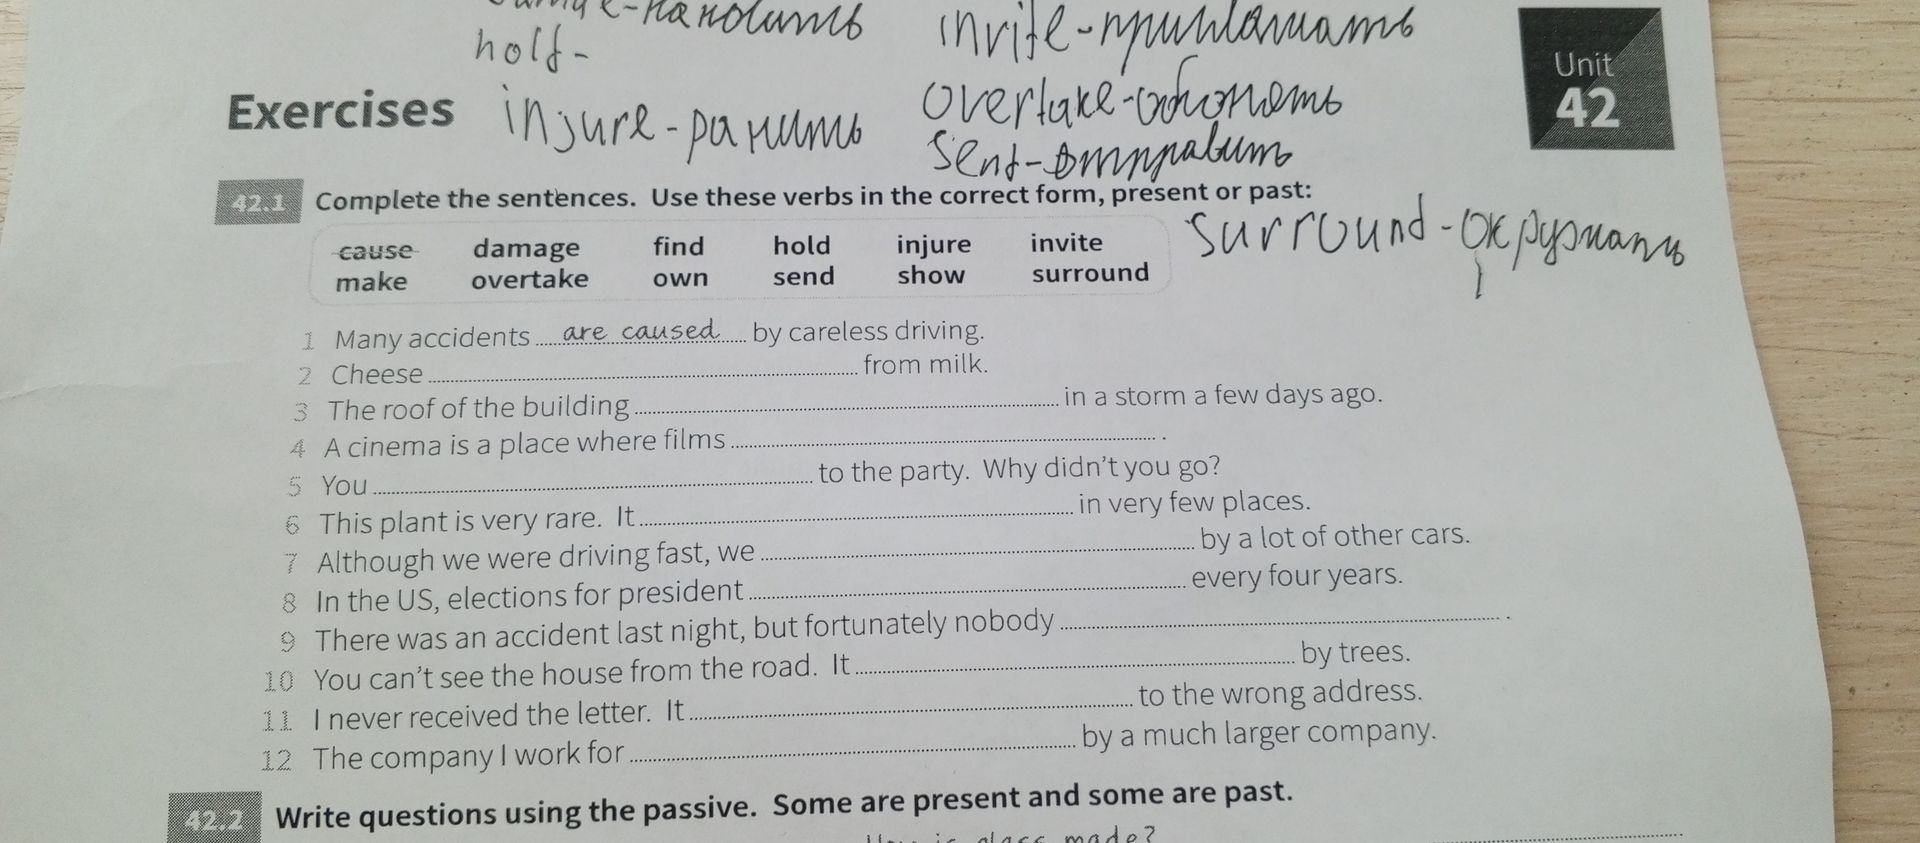 hold-
invite-приглашать
Unit
42
Exercises
injure-ранить
overtake-обгонять
sent-отправить
42.1 Complete the sentences. Use these verbs in the correct form, present or past:
surround-окружать
cause damage find hold injure invite
make overtake own send show surround
1 Many accidents are caused by careless driving.
2 Cheese from milk.
3 The roof of the building in a storm a few days ago.
4 A cinema is a place where films .
5 You to the party. Why didn't you go?
6 This plant is very rare. It in very few places.
7 Although we were driving fast, we by a lot of other cars.
8 In the US, elections for president every four years.
9 There was an accident last night, but fortunately nobody .
10 You can't see the house from the road. It by trees.
11 I never received the letter. It to the wrong address.
12 The company I work for by a much larger company.
42.2 Write questions using the passive. Some are present and some are past.
How is glass made?